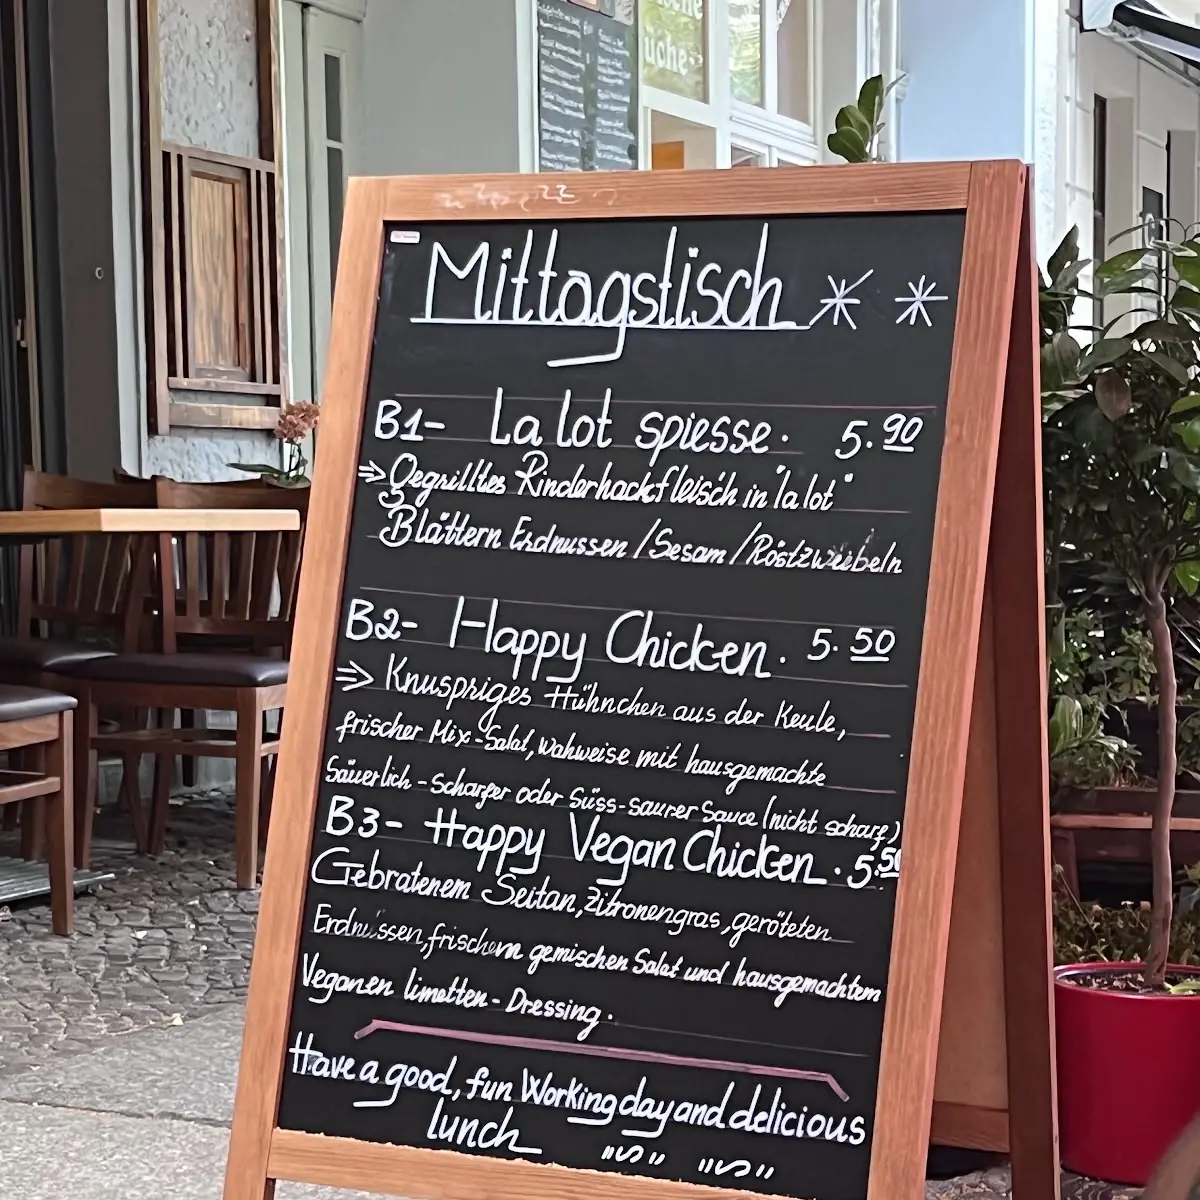 üche
Mittagstisch
B1- La lot spiesse. 5.90
Gegrilltes Rinderhackfleisch in "la lot"
Blättern Erdnussen / Sesam / Röstzwiebeln
B2- Happy Chicken. 5.50
Knuspriges Hühnchen aus der Keule,
frischer Mix-Salat, wahweise mit hausgemachte
Säuerlich-scharfer oder Süss-saurer Sauce (nicht scharf)
B3- Happy Vegan Chicken. 5.50
Gebratenem Seitan, Zitronengras, geröteten
Erdnüssen, frischem gemischen Salat und hausgemachtem
Veganen limetten-Dressing.
Have a good, fun Working day and delicious
lunch